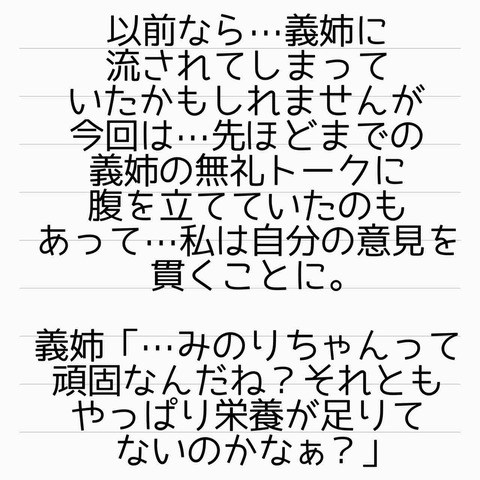 以前なら…義姉に
流されてしまって
いたかもしれませんが
今回は…先ほどまでの
義姉の無礼トークに
腹を立てていたのも
あって…私は自分の意見を
貫くことに。
義姉「…みのりちゃんって
頑固なんだね？それとも
やっぱり栄養が足りて
ないのかなぁ？」